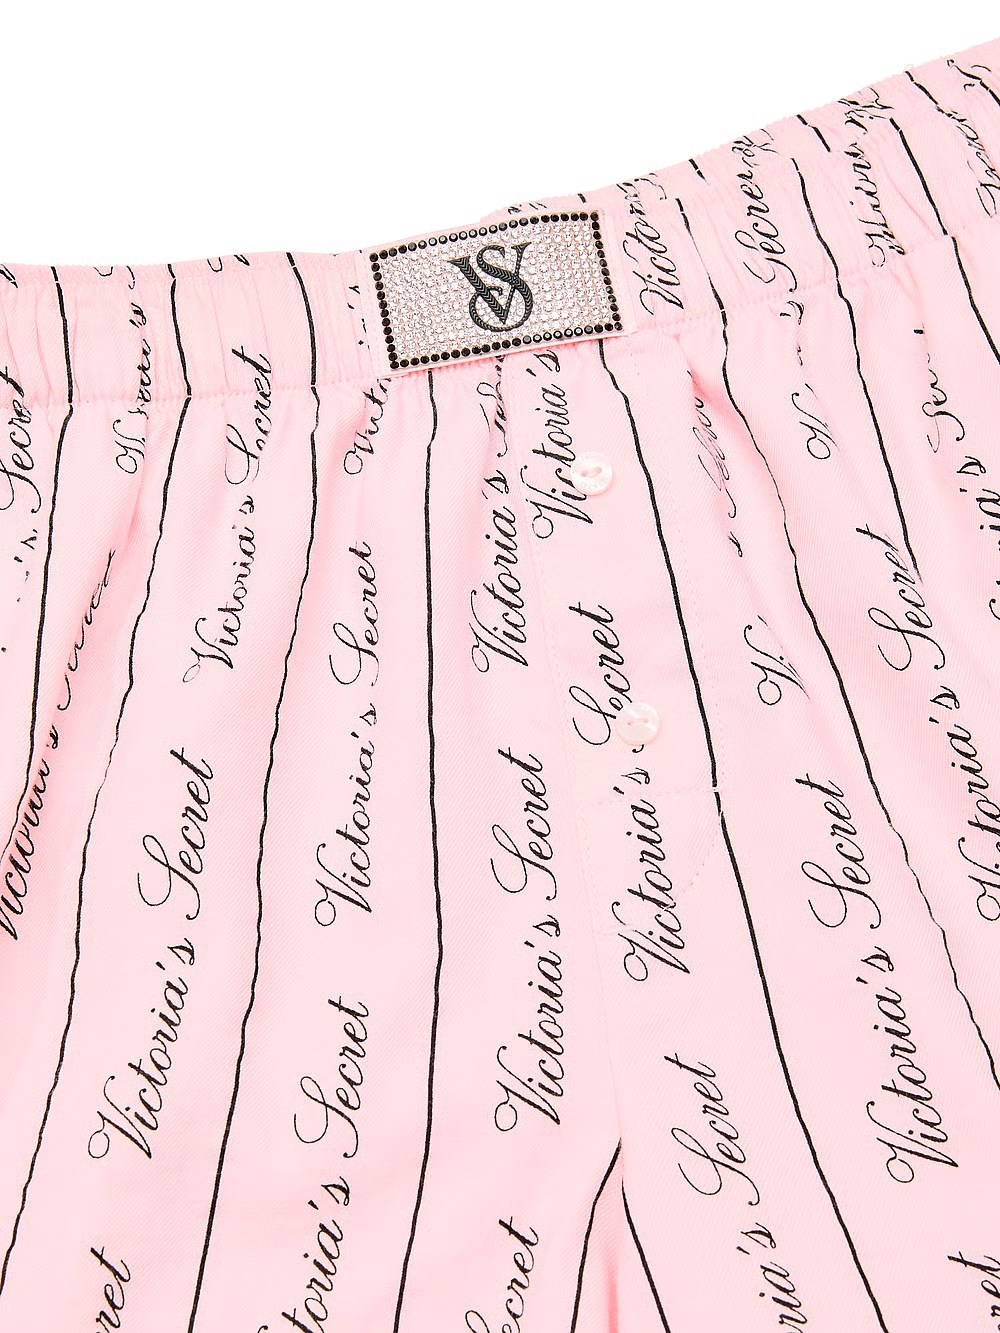 VS
Victoria's Secret
Victoria's Secret
Victoria's Secret
Victoria's Secret
Victoria's Secret
Victoria's Secret
Victoria's Secret
Victoria's Secret
Victoria's Secret
Victoria's
Secret
Secret